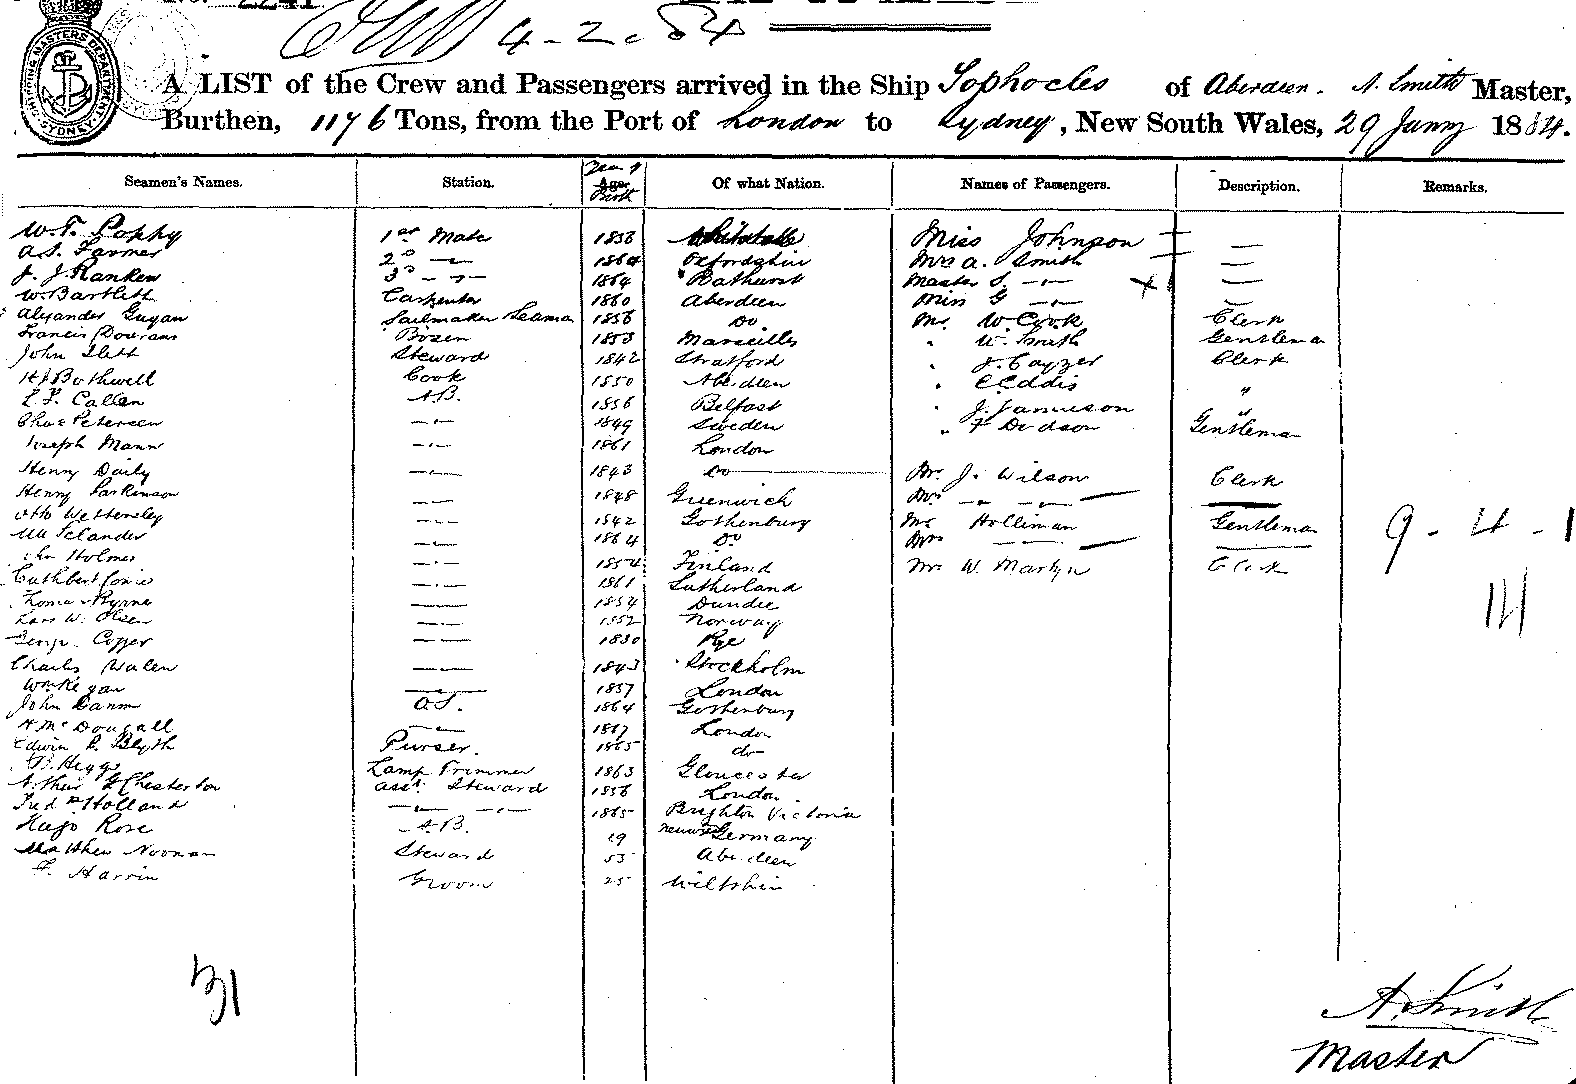 4-2-84
SHIPPING MASTERS DEPARTMENT SYDNEY
A LIST of the Crew and Passengers arrived in the Ship Sophocles of Aberdeen. A. Smith Master,
Burthen, 1176 Tons, from the Port of London to Sydney, New South Wales, 29 Janry 1884.
Seamen's Names. Station. Year of Birth Of what Nation. Names of Passengers. Description. Remarks.
W. T. Poppy 1st Mate 1838 Whitstable Miss Johnson —
A. S. Farmer 2d — 1860 Oxfordshire Mrs A. Smith —
J. J. Ranken 3d — 1864 Bathurst Master S. — —
W. Bartlett Carpenter 1860 Aberdeen Miss G — —
Alexander Guyan Sailmaker Seaman 1856 Do Mr W. Cook Clerk
Francis Bosen 1853 Marseilles " W. Smith Gentleman
John Steward 1842 Stratford " J. Cayzer Clerk
H J Bothwell Cook 1850 Aberdeen " C Eddis "
L. F. Callen A.B. 1856 Belfast " J. Jamieson "
Chas Petersen — 1849 Sweden " F Dodson Gentleman
Joseph Mann — 1861 London
Henry Daily — 1843 Do Mr J. Wilson Clerk
Henry Parkinson — 1848 Greenwich Mrs — —
Otto Wettersley — 1842 Gothenburg Mr Holliman Gentleman 9-4-1
— 1864 Do Mrs — —
John Holmes — 1854 Finland Mr W. Martyn Clerk
Cuthbert — 1861 Sutherland
Thomas Byrne — 1854 Dundee 14
Lars W. Olsen — 1852 Norway
George Copper — 1830 Rye
Charles Walen — 1843 Stockholm
— 1857 London
John O.S. 1864 Gothenburg
H McDougall — 1867 London
Edwin R. Blyth Purser. 1865 do
B. Higgs Lamp Trimmer 1863 Gloucester
Arthur G Chesterton Asst. Steward 1856 London
Fredk Holland — — 1865 Brighton Victoria
Hugo Rose A.B. 19 Germany
Matthew Noonan Steward 53 Aberdeen
F. Harrin Groom 25 Wiltshire
31
A. Smith
Master